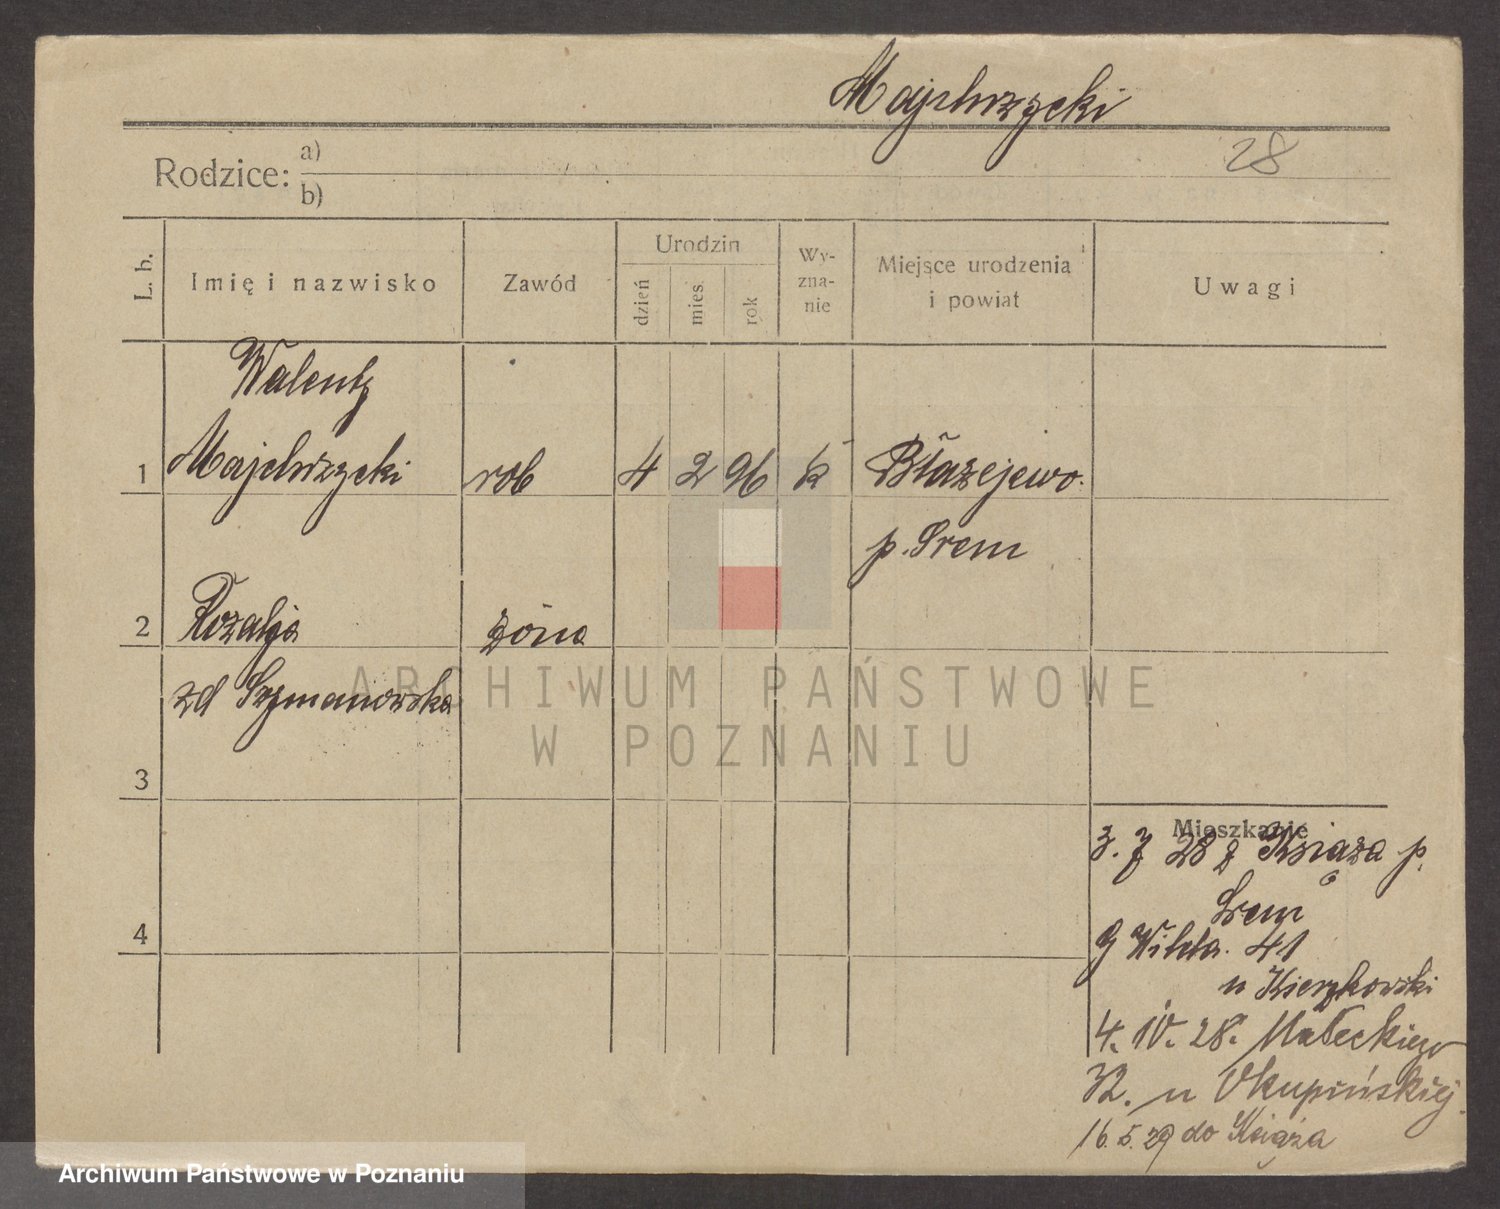 Majchrzycki
28
Rodzice: a)
b)
L. b.
Imię i nazwisko
Zawód
Urodzin
dzień
mies.
rok
Wy-
zna-
nie
Miejsce urodzenia
i powiat
Uwagi
Walenty
1 Majchrzycki rob 4 2 96 k Błażejewo.
p. Śrem
2 Rozalja żona
zd Szymanowska
3
4
Mieszkanie
3. 7 28 z Książa p.
Śrem
G Wilda. 41
u Kierzkowski
4. 10. 28. Małeckiego
32. u Okupińskiej.
16.5.29 do Książa
ARCHIWUM PAŃSTWOWE
W POZNANIU
Archiwum Państwowe w Poznaniu